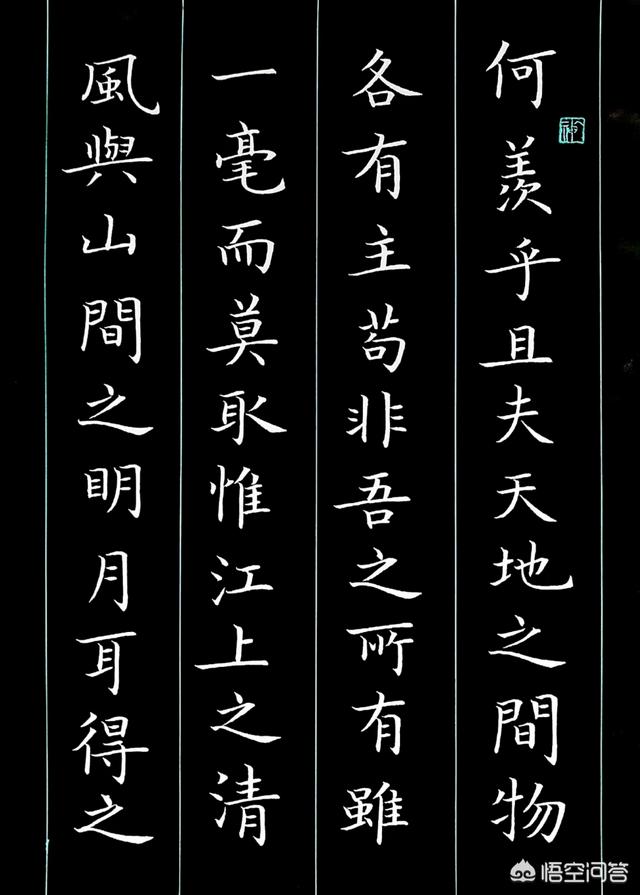 何羨乎且夫天地之間物
各有主苟非吾之所有雖
一毫而莫取惟江上之清
風與山間之明月耳得之
悟空问答